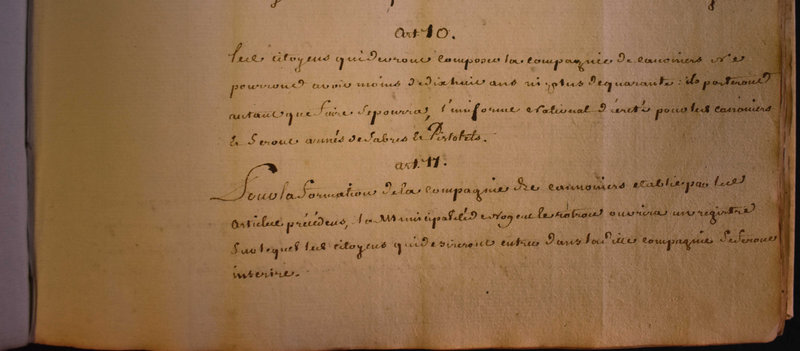 Art 10.
Les citoyens qui devront composer la compagnie de canoniers ne
pourront avoir moins de dix huit ans ni plus de quarante: ils porteront
autant que faire se pourra, l'uniforme national décreté pour les canoniers
& seront armés de sabres & Pistolets.
art. 11.
Pour la formation de la compagnie de cannoniers etablie par les
articles précédens, la Municipalité de nogent le rotrou ouvrira un registre
Sur lequel les citoyens qui desireront entrer dans ladite compagnie se feront
inscrire.